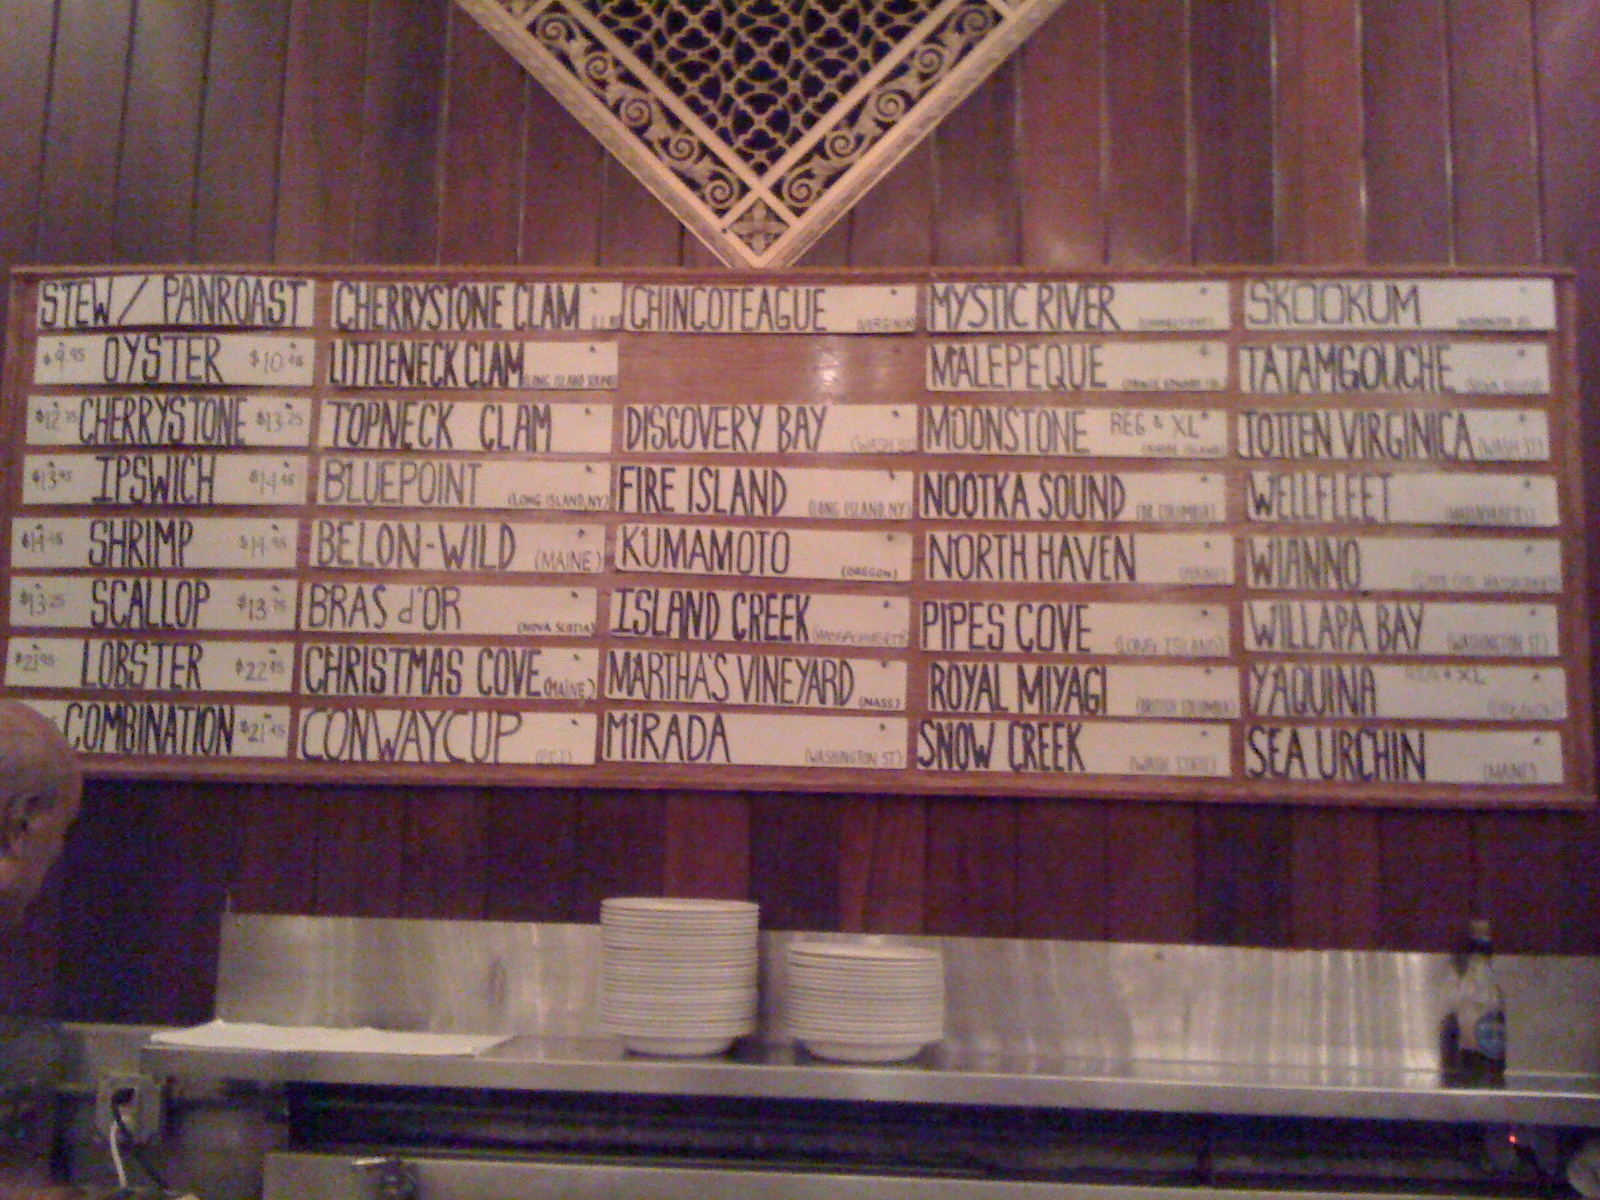 STEW / PANROAST
$9.95 OYSTER $10.45
$12.75 CHERRYSTONE $13.25
$13.95 IPSWICH $14.45
SHRIMP
$13.25 SCALLOP $13.75
$21.95 LOBSTER $22.45
COMBINATION $21.45
CHERRYSTONE CLAM
LITTLENECK CLAM (LONG ISLAND SOUND)
TOPNECK CLAM
BLUEPOINT (LONG ISLAND, NY)
BELON-WILD (MAINE)
BRAS d'OR (NOVA SCOTIA)
CHRISTMAS COVE (MAINE)
CONWAYCUP (P.E.I.)
CHINCOTEAGUE (VIRGINIA)
DISCOVERY BAY
FIRE ISLAND (LONG ISLAND, NY)
KUMAMOTO (OREGON)
ISLAND CREEK (MASSACHUSETTS)
MARTHA'S VINEYARD (MASS)
MIRADA (WASHINGTON ST)
MYSTIC RIVER
MALEPEQUE
MOONSTONE REG & XL
NOOTKA SOUND
NORTH HAVEN (MAINE)
PIPES COVE (LONG ISLAND)
ROYAL MIYAGI (BRITISH COLUMBIA)
SNOW CREEK (WASH STATE)
SKOOKUM
TATAMGOUCHE
TOTTEN VIRGINICA (WASH ST)
WELLFLEET
WIANNO
WILLAPA BAY (WASHINGTON ST)
YAQUINA REG & XL
SEA URCHIN (MAINE)